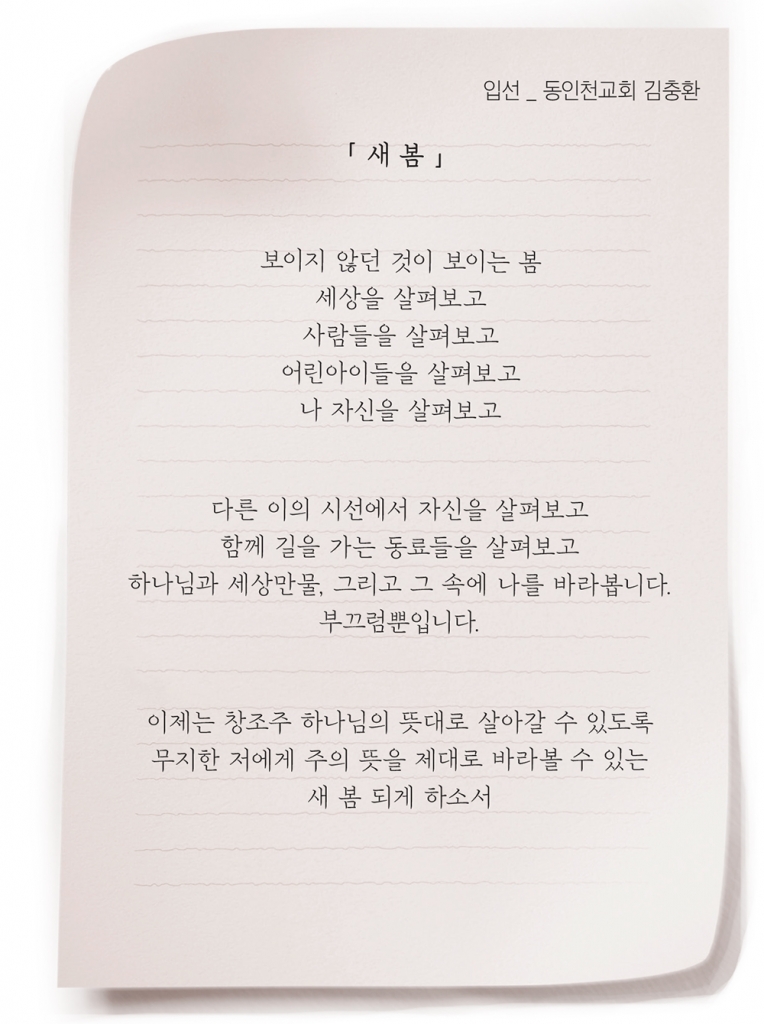 입선 _ 동인천교회 김충환
「 새 봄 」
보이지 않던 것이 보이는 봄
세상을 살펴보고
사람들을 살펴보고
어린아이들을 살펴보고
나 자신을 살펴보고
다른 이의 시선에서 자신을 살펴보고
함께 길을 가는 동료들을 살펴보고
하나님과 세상만물, 그리고 그 속에 나를 바라봅니다.
부끄럼뿐입니다.
이제는 창조주 하나님의 뜻대로 살아갈 수 있도록
무지한 저에게 주의 뜻을 제대로 바라볼 수 있는
새 봄 되게 하소서